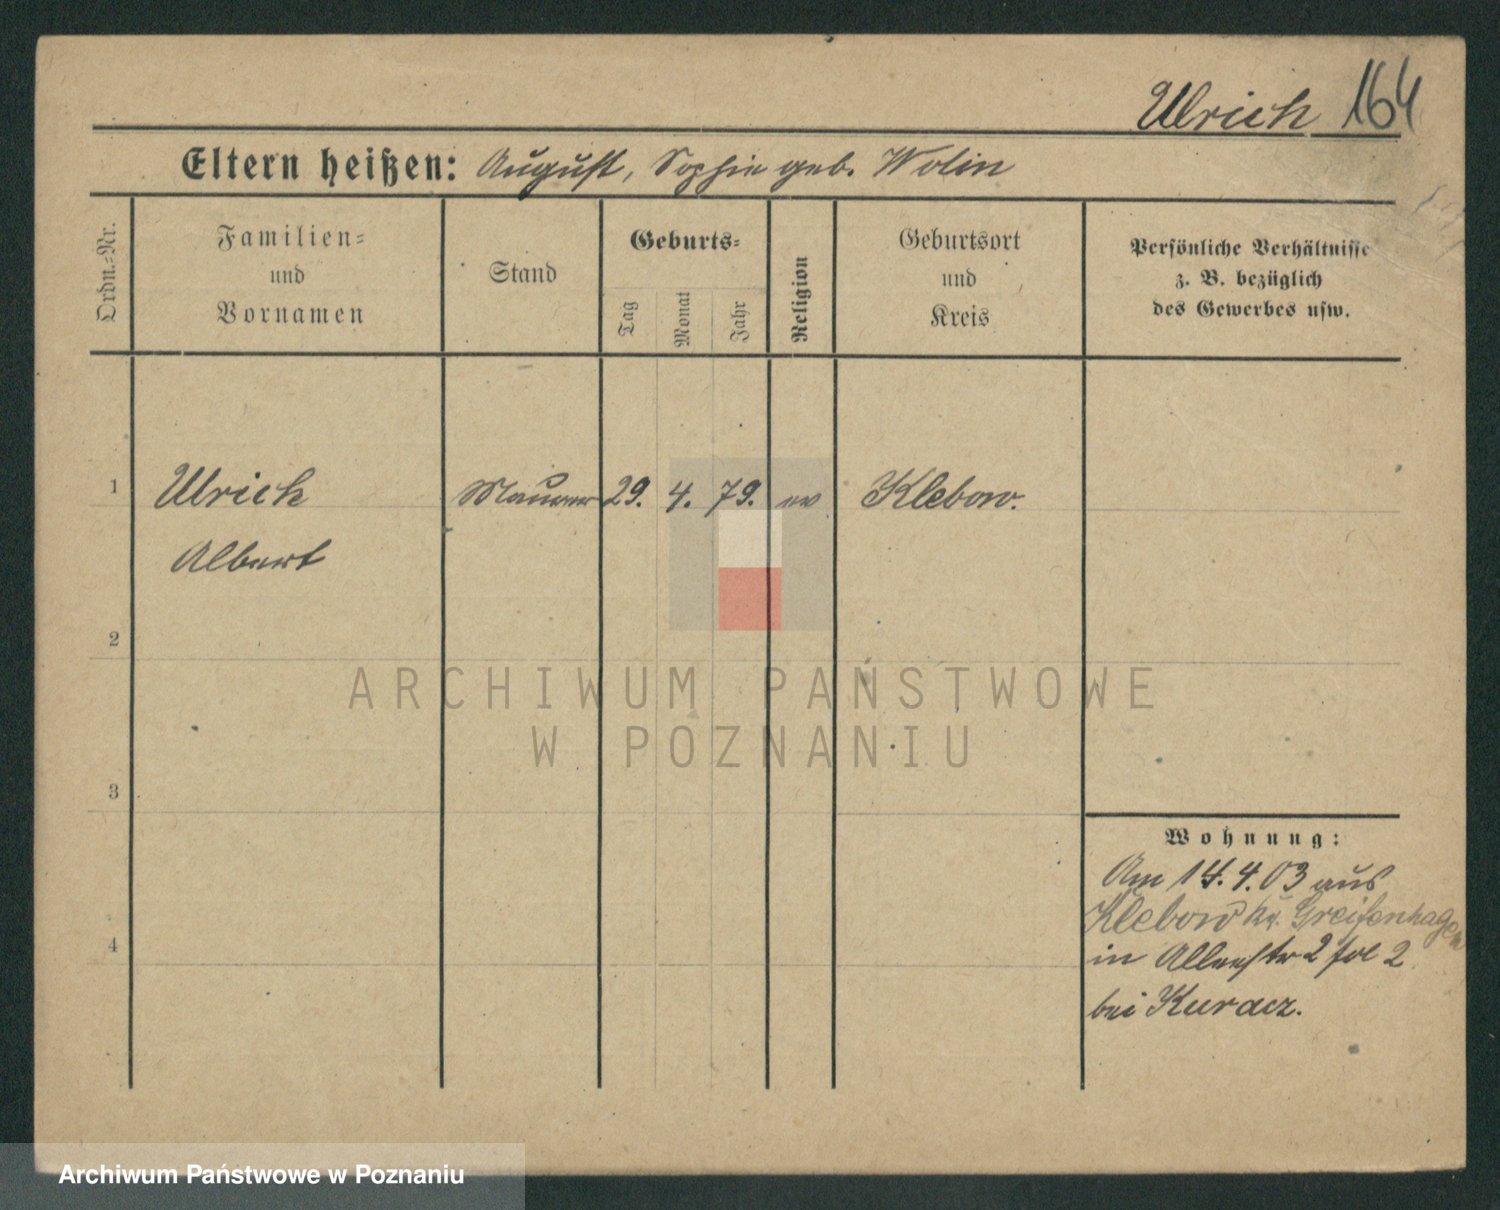 Ulrich 164
Eltern heißen: August, Sophie geb. Wolin
Ordn.-Nr.
Familien-
und
Vornamen
Stand
Geburts-
Tag
Monat
Jahr
Religion
Geburtsort
und
Kreis
Persönliche Verhältnisse
z. B. bezüglich
des Gewerbes usw.
1 Ulrich Maurer 29. 4. 79. ev Klebow.
Albert
2
ARCHIWUM PAŃSTWOWE
W POZNANIU
3
Wohnung:
Am 14.4.03 aus
Klebow Kr. Greifenhagen
4
in Alleestr 2 fol 2
bei Kuracz.
Archiwum Państwowe w Poznaniu